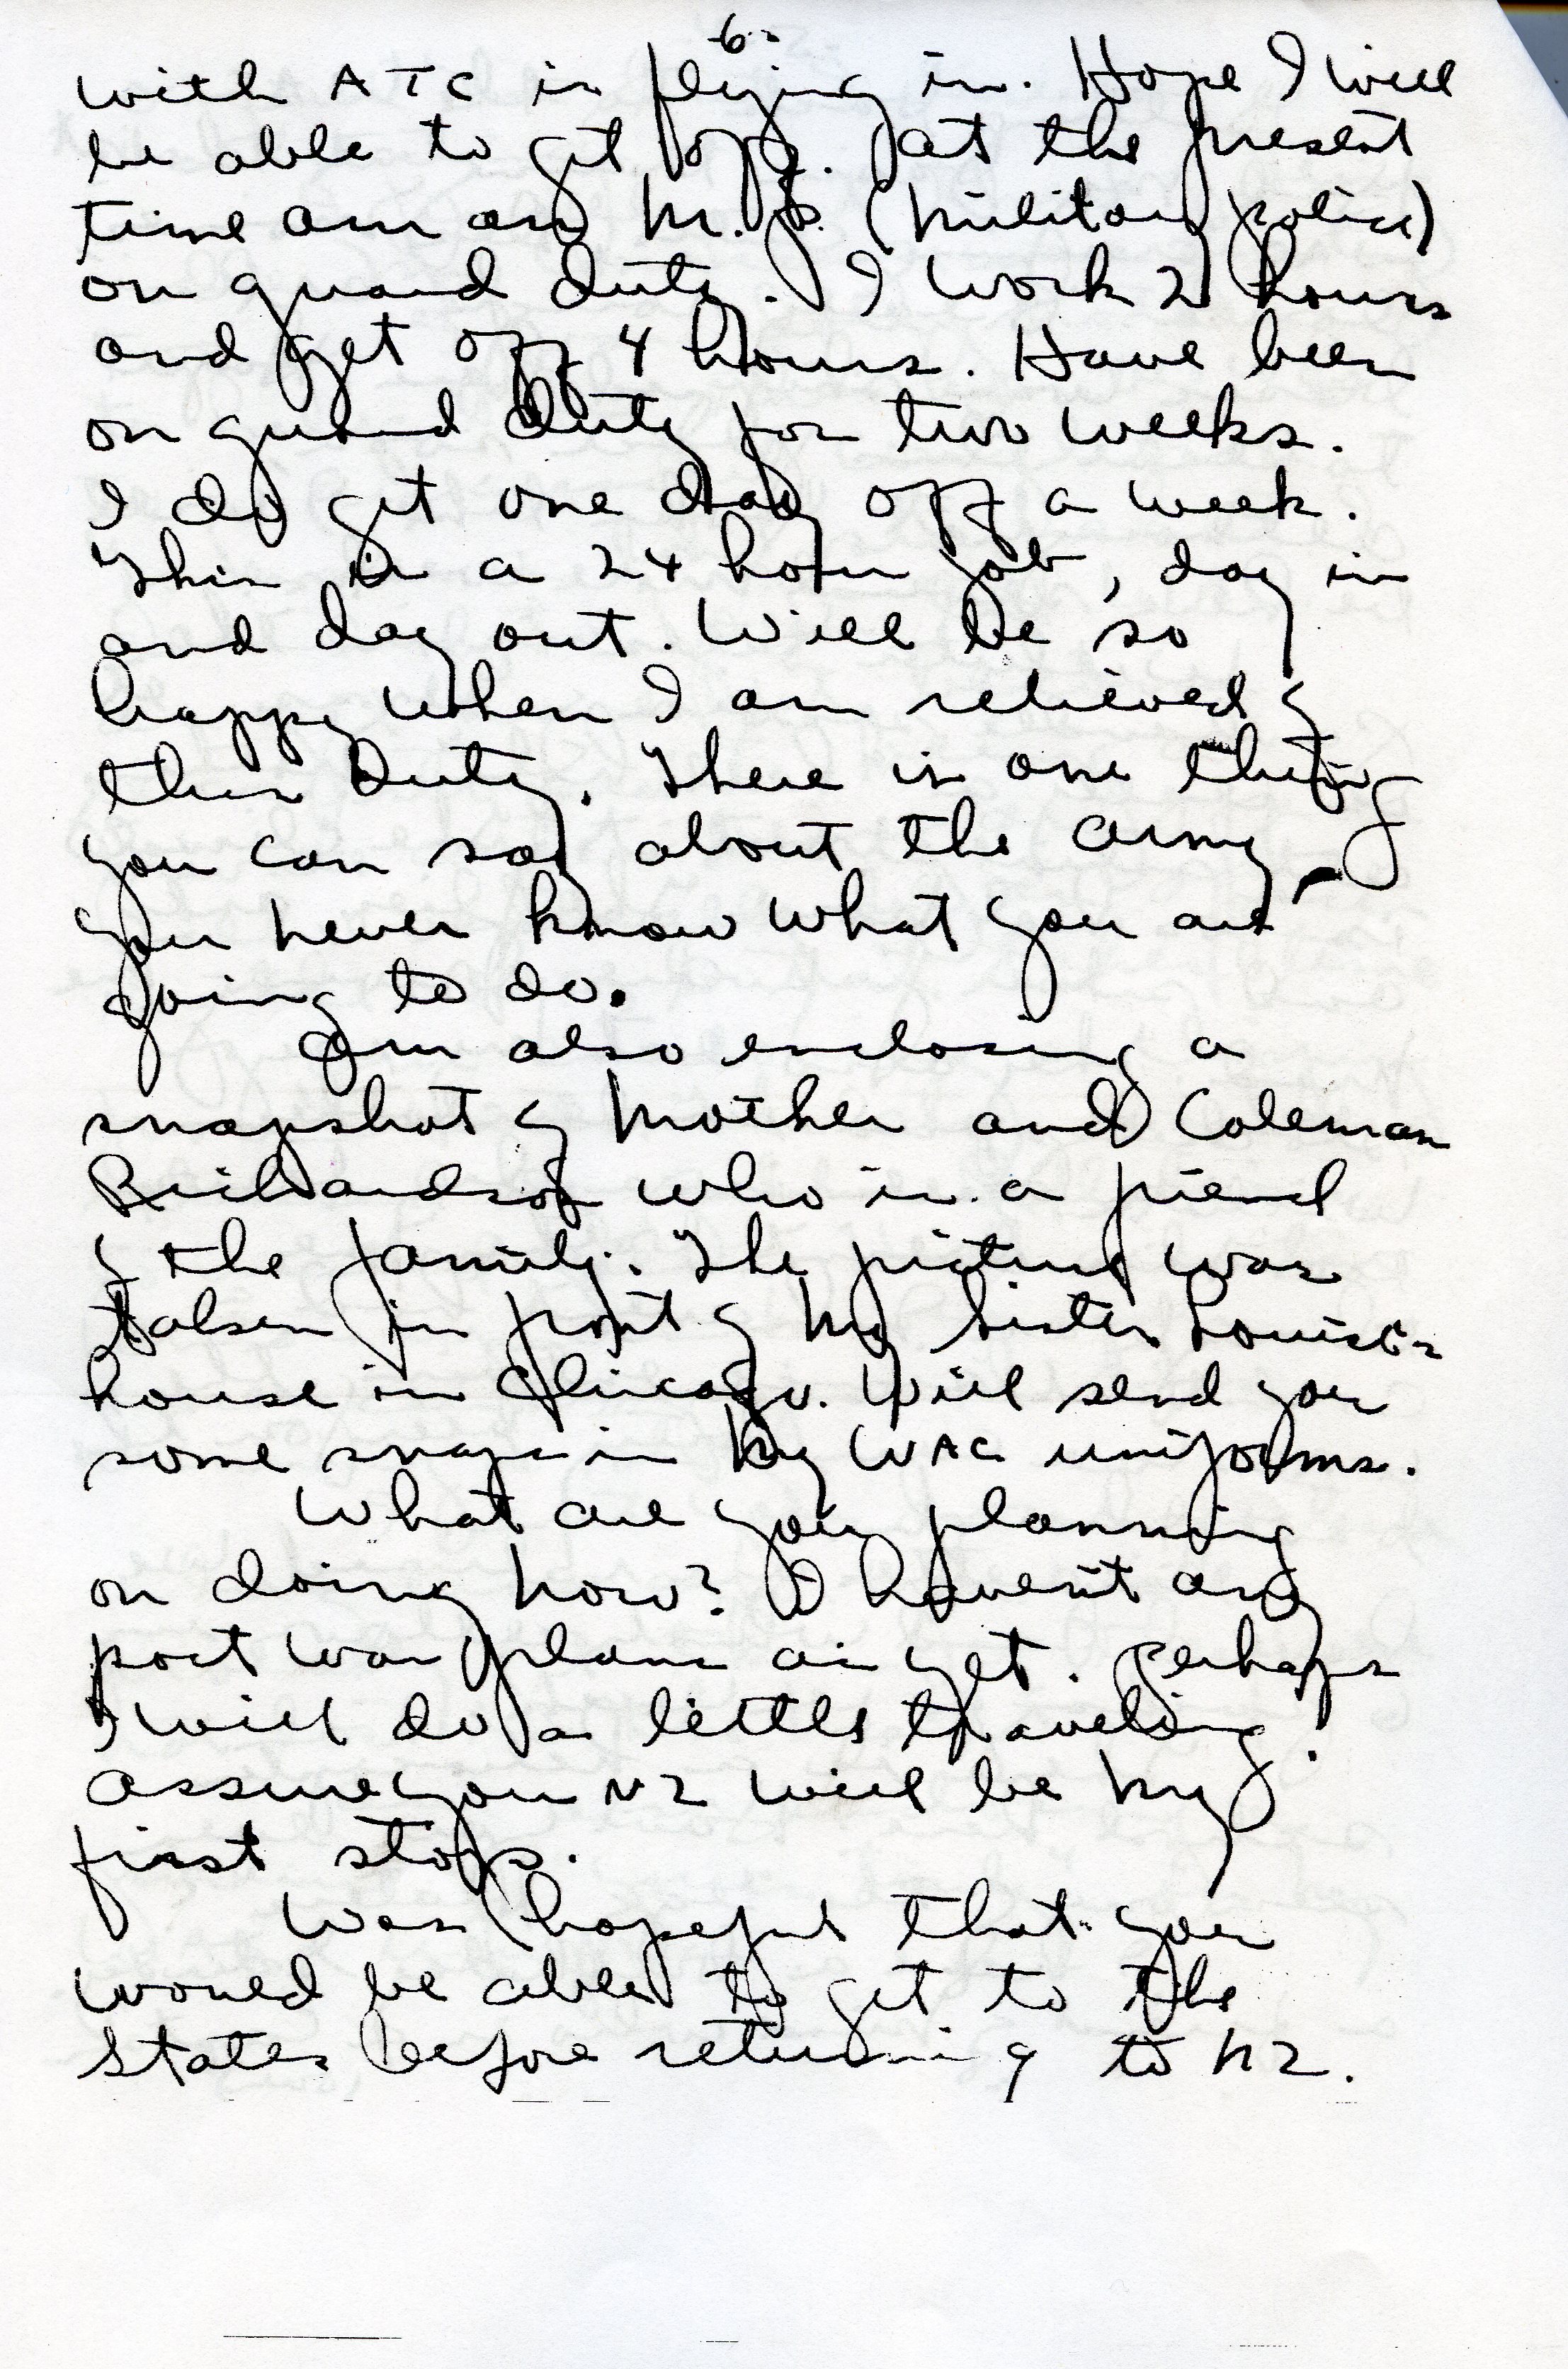 6.
with ATC is flying in. Hope I will
be able to get off. At the present
time am an M.P. (Military police)
on guard duty. I work 2 hours
and get off 4 hours. Have been
on guard duty for two weeks.
I do get one day off a week.
This is a 24 hour job, day in
and day out. Will be so
happy when I am relieved of
this duty. There is one thing
you can say about the army -
you never know what you are
going to do.
Am also enclosing a
snapshot of Mother and Coleman
Richardson who is a friend
of the family. The picture was
taken in front of my sister Louise's
house in Chicago. Will send you
some snaps in my WAC uniforms.
What are you planning
on doing now? I haven't any
post war plans as yet. Perhaps
I will do a little traveling.
assure you NZ will be my
first stop.
Was hopeful that you
would be able to get to the
States before returning to NZ.